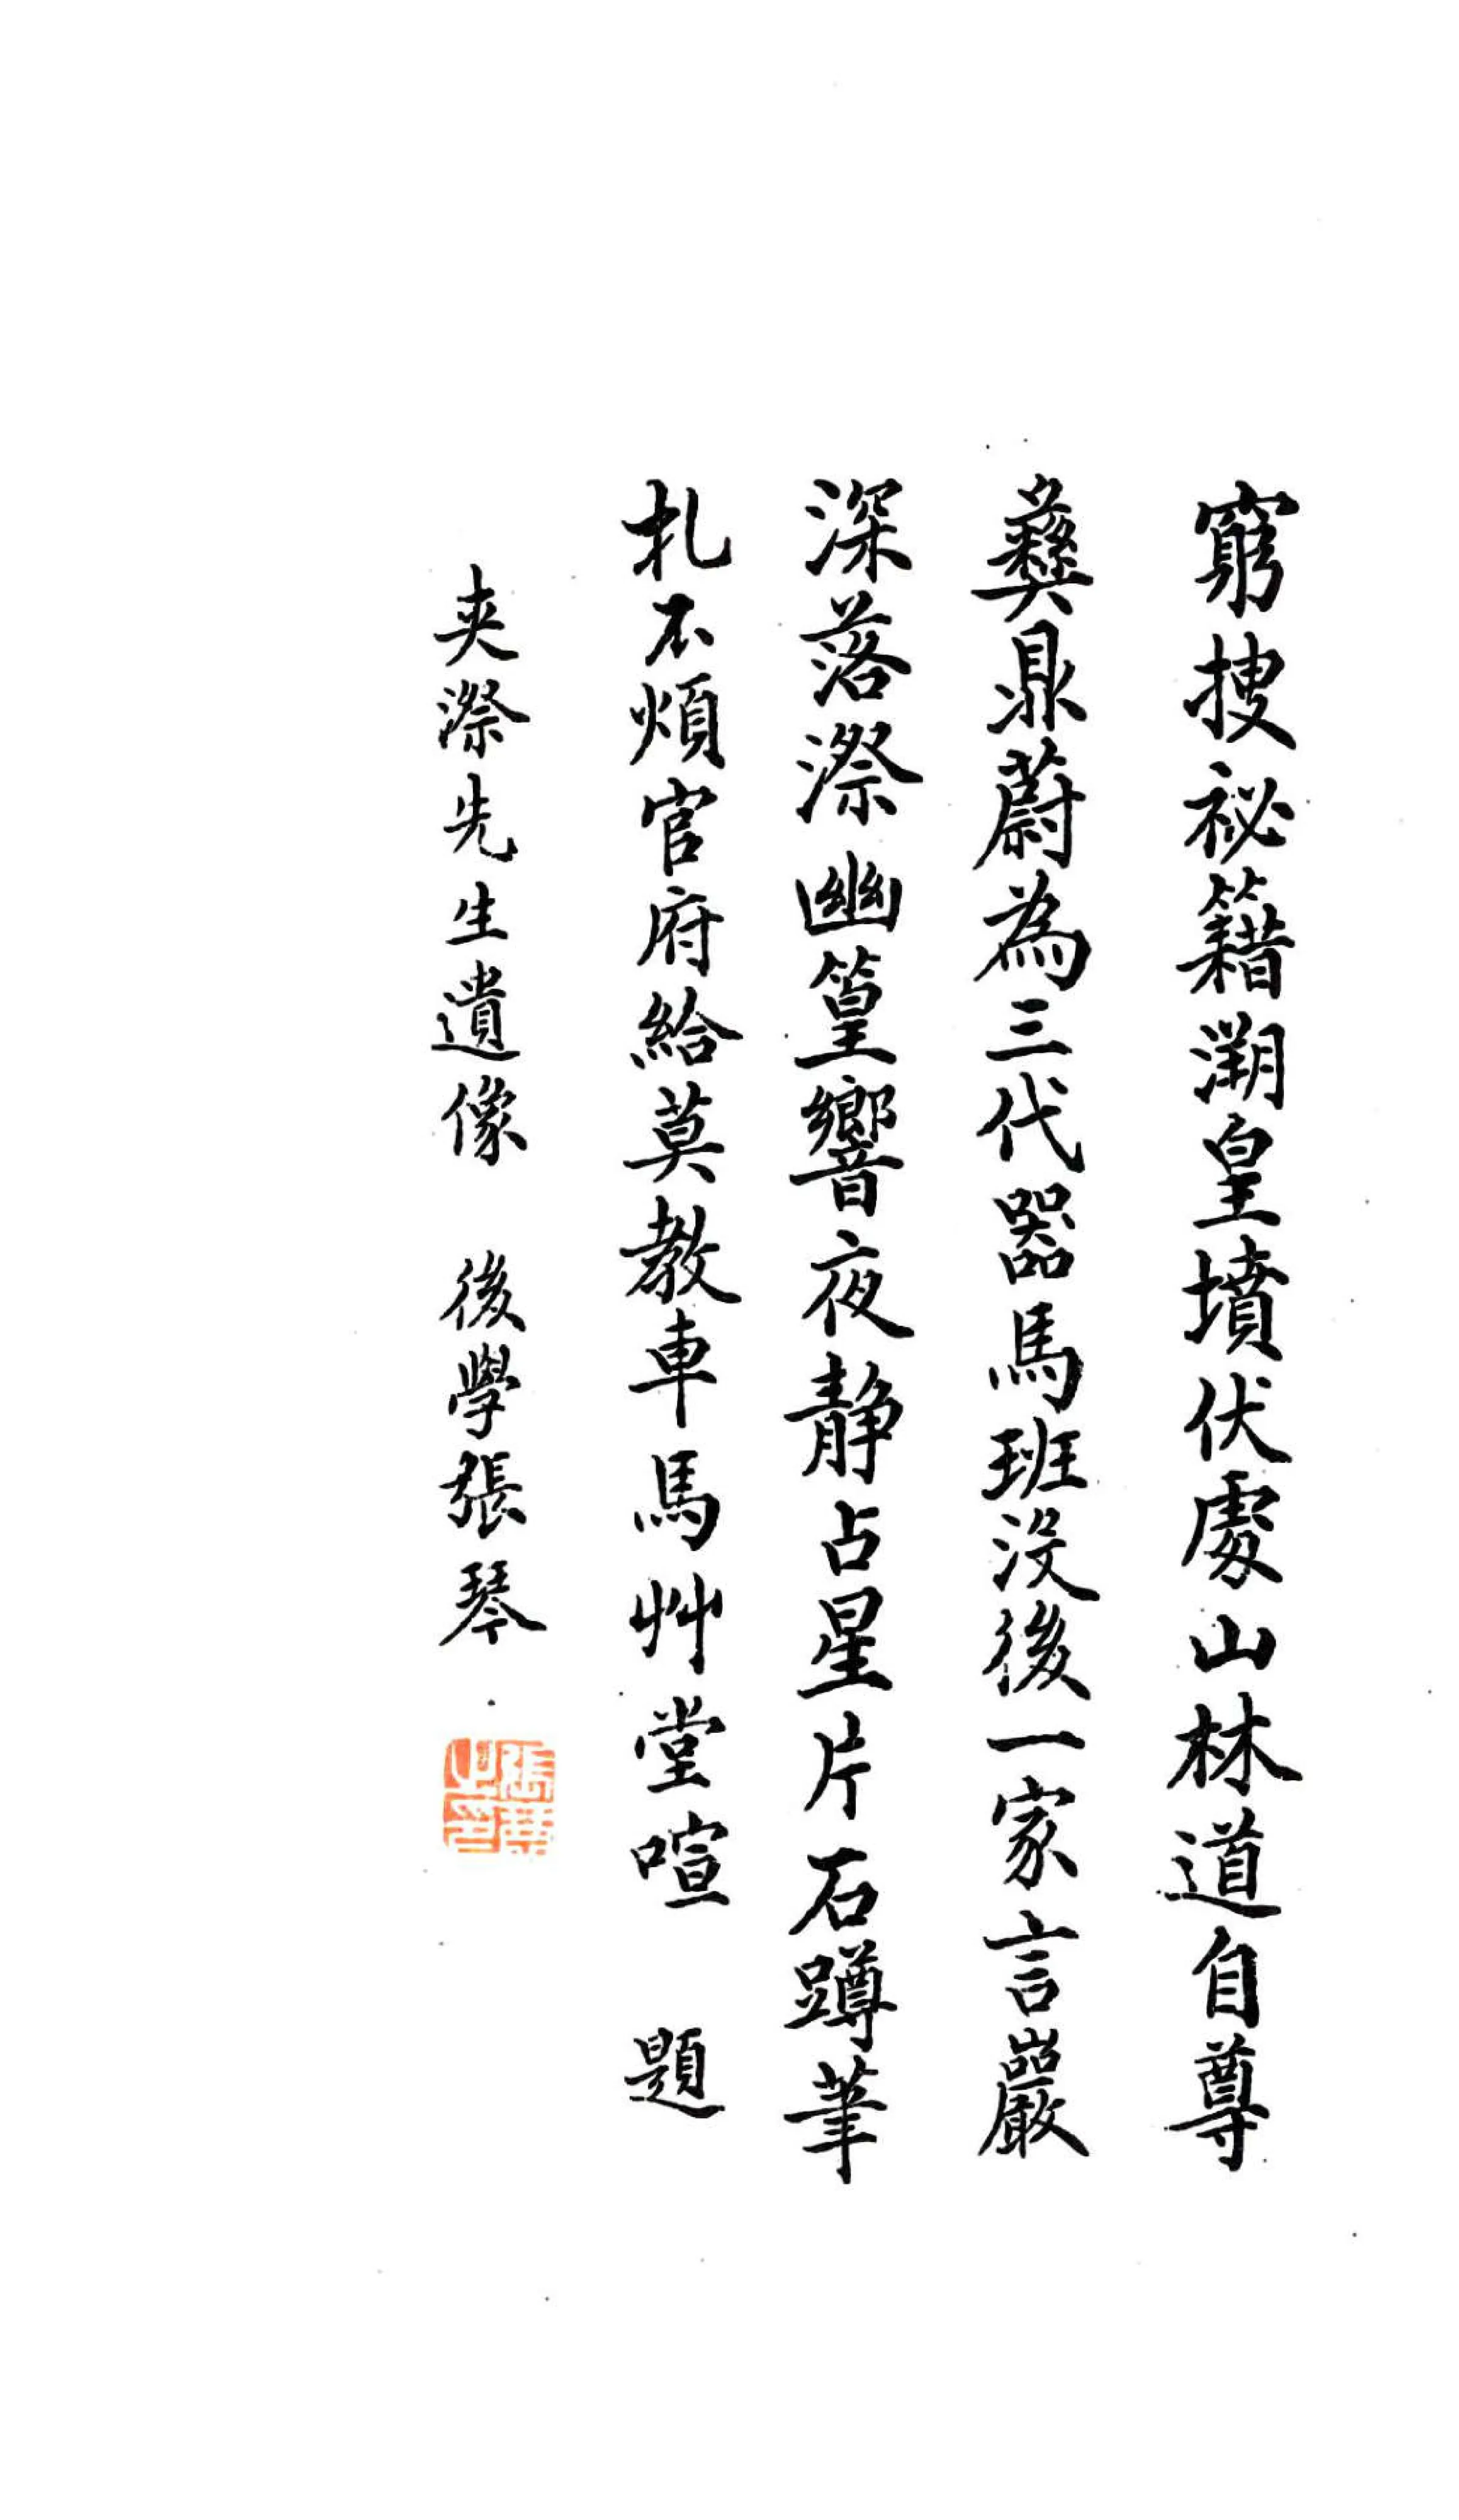 窮捜祕籍溯皇墳伏處山林道自尊
彝鼎蔚為三代器馬班没後一家言巖
深落漈幽篁響夜静占星片石蹲筆
札不煩官府給莫教車馬艸堂喧 題
夾漈先生遺像 後學張琴
張琴之印